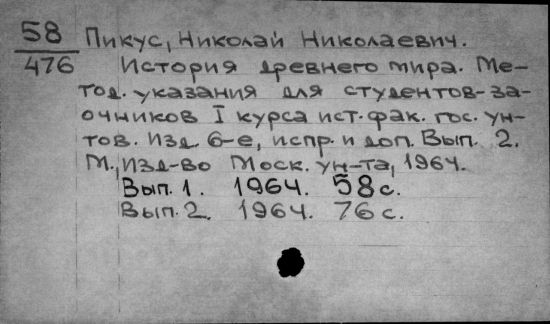 58 Пикус, Николай Николаевич.
476 История древнего мира. Ме-
тод. указания для студентов-за-
очников I курса ист. фак. гос. ун-
тов. Изд. 6-е, испр. и доп. Вып. 2.
М., Изд-во Моск. ун-та, 1964.
Вып. 1. 1964. 58 с.
Вып. 2. 1964. 76 с.